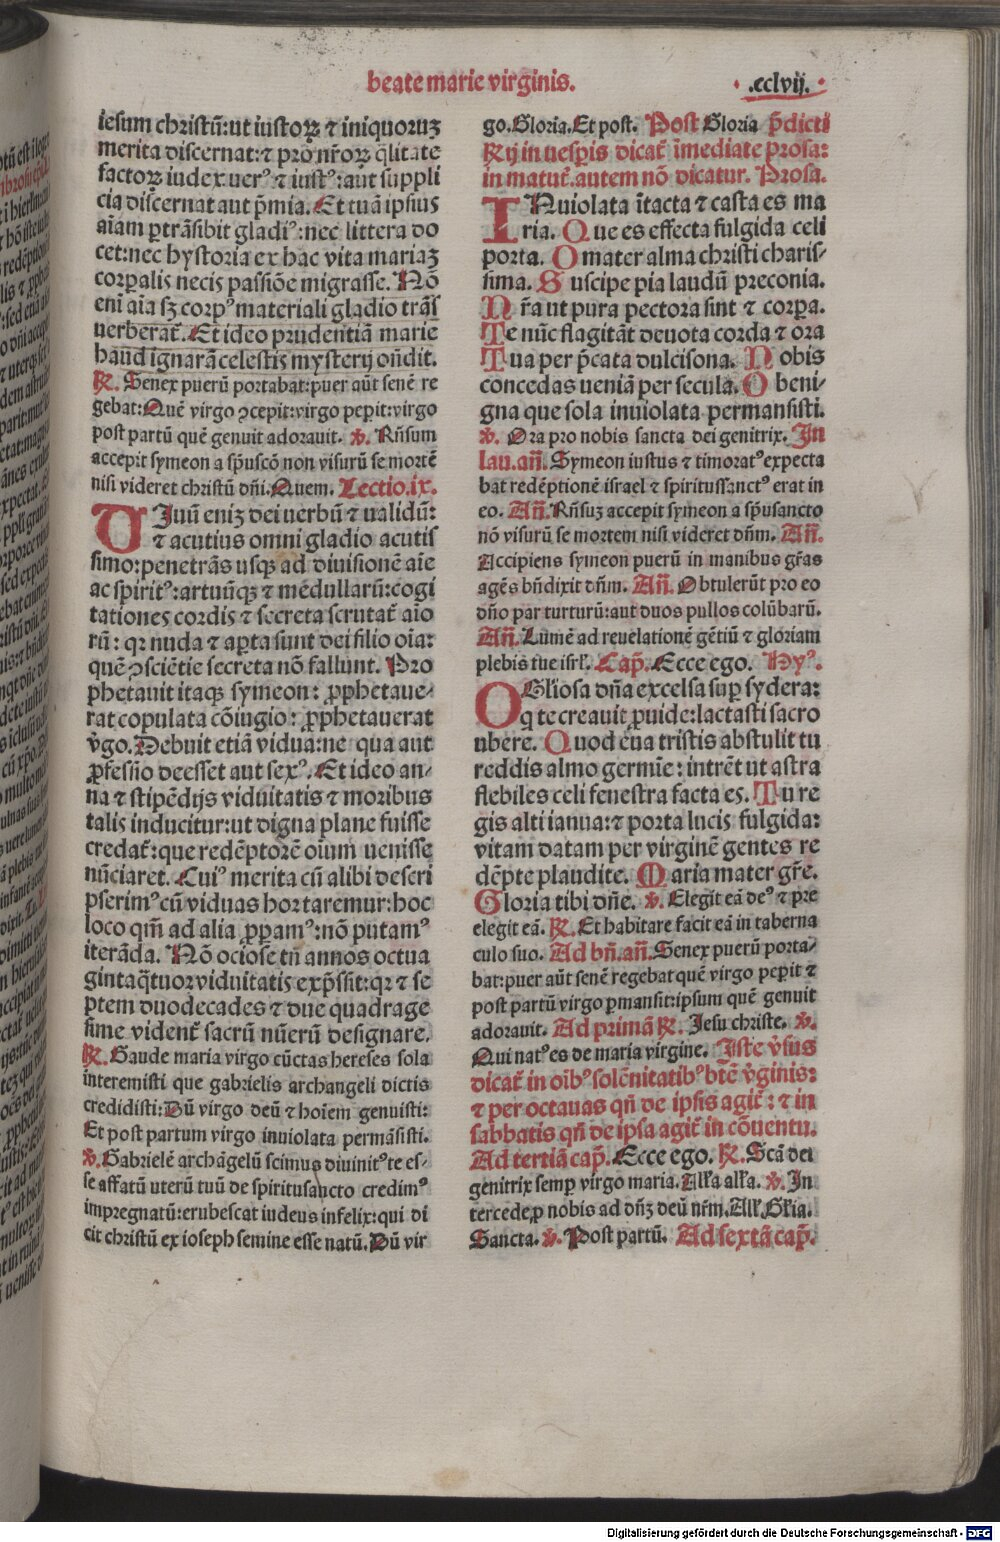 beate marie virginis.
.cclvij.
iesum christū:ut iustoꝝ ⁊ iniquoruꝫ
merita discernat:⁊ pro nr̄oꝝ q̄litate
factoꝝ iudex uerꝰ ⁊ iustꝰ:aut suppli
cia discernat aut p̄mia. Et tuā ipsius
aīam ꝑtrāsibit gladiꝰ:nec littera do
cet:nec hystoria ex hac vita mariaꝫ
corꝑalis necis passiōe migrasse. Nō
enī aīa sꝫ corpꝰ materiali gladio trāſ
uerberat̄. Et ideo prudentiā marie
haud ignarā celestis mysterij on̄dit.
℟. Senex puerū portabat:puer aūt senē re
gebat:Quē virgo ↄcepit:virgo peꝑit:virgo
post partū quē genuit adorauit. ℣. Rn̄sum
accepit symeon a sp̄uscō non visurū se mortē
nisi videret christū dn̄i. Quem. Lectio.ix.
VIuū eniꝫ dei uerbū ⁊ ualidū:
⁊ acutius omni gladio acutis
simo:penetrās usqꝫ ad diuisionē aīe
ac spiritꝰ:artuūqꝫ ⁊ medullarū:cogi
tationes cordis ⁊ secreta scrutat̄ aīo
rū: qꝛ nuda ⁊ aꝑta sunt dei filio oīa:
quē ↄsciētie secreta nō fallunt. Pro
phetauit itaqꝫ symeon: ꝓphetaue-
rat copulata cōiugio: ꝓphetauerat
v̄go. Debuit etiā vidua:ne qua aut
ꝓfessio deesset aut sexꝰ. Et ideo an-
na ⁊ stipēdijs viduitatis ⁊ moribus
talis inducitur:ut digna plane fuisse
credat̄:que redēptorē oīum uenisse
nūciaret. Cuiꝰ merita cū alibi descri
pserimꝰ cū viduas hortaremur:hoc
loco qm̄ ad alia ꝓꝑamꝰ:nō putamꝰ
iterāda. Nō ociose tn̄ annos octua
gintaq̄tuor viduitatis exp̄ssit:qꝛ ⁊ se
ptem duodecades ⁊ due quadrage
sime vident̄ sacrū nūerū designare.
℟. Gaude maria virgo cūctas hereses sola
interemisti que gabrielis archangeli dictis
credidisti:Dū virgo deū ⁊ hoīem genuisti:
Et post partum virgo inuiolata permāsisti.
℣. Gabrielē archāgelū scimus diuinitꝰ te es-
se affatū uterū tuū de spiritusancto credimꝰ
impregnatū:erubescat iudeus infelix:qui di
cit christū ex ioseph semine esse natū. Dū vir
go. Gloria. Et post. Post Gloria p̄dicti
℟ij in uesꝑis dicat̄ īmediate prosa:
in matut̄. autem nō dicatur. Prosa.
INuiolata ītacta ⁊ casta es ma
ria. Que es effecta fulgida celi
porta. O mater alma christi charis-
sima. Suscipe pia laudū preconia.
Nr̄a ut pura pectora sint ⁊ corꝑa.
Te nūc flagitāt deuota corda ⁊ ora
Tua per p̄cata dulcisona. Nobis
concedas ueniā per secula. O beni-
gna que sola inuiolata permansisti.
℣. Ora pro nobis sancta dei genitrix. In
lau. an̄. Symeon iustus ⁊ timoratꝰ expecta
bat redēptionē israel ⁊ spiritussanctꝰ erat in
eo. An̄. Rn̄suꝫ accepit symeon a sp̄usancto
nō visurū se mortem nisi videret dn̄m. An̄.
Accipiens symeon puerū in manibus gr̄as
agēs bn̄dixit dn̄m. An̄. Obtulerūt pro eo
dn̄o par turturū:aut duos pullos colūbarū.
An̄. Lumē ad reuelationē gētiū ⁊ gloriam
plebis tue isrl̓. Cap̄. Ecce ego. Hyꝰ.
OGl̓iosa dn̄a excelsa suꝑ sydera:
q te creauit ꝓuide:lactasti sacro
ubere. Quod eua tristis abstulit tu
reddis almo germīe: intrēt ut astra
flebiles celi fenestra facta es. Tu re
gis alti ianua:⁊ porta lucis fulgida:
vitam datam per virginē gentes re
dēpte plaudite. Maria mater gr̄e.
Gloria tibi dn̄e. ℣. Elegit eā deꝰ ⁊ pre
elegit eā. ℟. Et habitare facit eā in taberna
culo suo. Ad bn̄. an̄. Senex puerū porta-
bat:puer aūt senē regebat quē virgo peꝑit ⁊
post partū virgo ꝑmansit:ipsum quē genuit
adorauit. Ad primā ℟. Jesu christe. ℣.
Qui natꝰ es de maria virgine. Iste v̄sus
dicat̄ in oībꝰ solēnitatibꝰ btē v̄ginis:
⁊ per octauas qn̄ de ipsis agit̄: ⁊ in
sabbatis qn̄ de ipsa agit̄ in cōuentu.
Ad tertiā cap̄. Ecce ego. ℟. Scā dei
genitrix semꝑ virgo maria. All̓a all̓a. ℣. In
tercede ꝓ nobis ad dn̄ꝫ deū nr̄m. All̓. Gl̓ia.
Sancta. ℣. Post partū. Ad sextā cap̄.
Digitalisierung gefördert durch die Deutsche Forschungsgemeinschaft - DFG